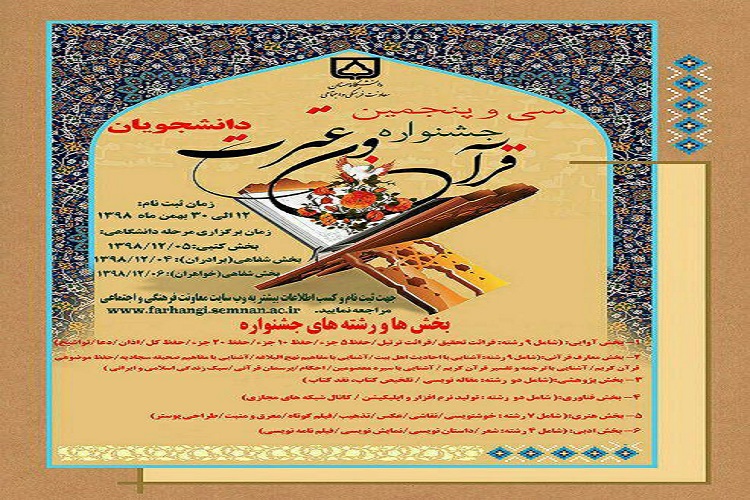 دانشگاه سمنان
معاونت فرهنگی و اجتماعی
سی و پنجمین
جشنواره
دانشجویان
قرآن و عترت
زمان ثبت نام:
۱۲ الی ۳۰ بهمن ماه ۱۳۹۸
زمان برگزاری مرحله دانشگاهی:
بخش کتبی: ۱۳۹۸/۱۲/۰۵
بخش شفاهی(برادران): ۱۳۹۸/۱۲/۰۴
بخش شفاهی(خواهران): ۱۳۹۸/۱۲/۰۶
جهت ثبت نام و کسب اطلاعات بیشتر به وب سایت معاونت فرهنگی و اجتماعی
مراجعه نمایید. www.farhangi.semnan.ac.ir
بخش ها و رشته های جشنواره
۱- بخش آوایی: (شامل ۹ رشته: قرائت تحقیق/قرائت ترتیل/حفظ ۵ جزء/حفظ ۱۰ جزء/حفظ ۲۰ جزء/حفظ کل/اذان/دعا/تواشیح)
۲- بخش معارف قرآنی:(شامل ۹ رشته:آشنایی با احادیث اهل بیت/آشنایی با مفاهیم نهج البلاغه/آشنایی با مفاهیم صحیفه سجادیه/حفظ موضوعی
قرآن کریم/آشنایی با ترجمه و تفسیر قرآن کریم/آشنایی با سیره معصومین/احکام/پرسمان قرآنی/سبک زندگی اسلامی و ایرانی)
۳- بخش پژوهشی:(شامل دو رشته: مقاله نویسی / تلخیص کتاب، نقد کتاب)
۴- بخش فناوری:(شامل دو رشته: تولید نرم افزار و اپلیکیشن / کانال شبکه های مجازی)
۵- بخش هنری:(شامل ۷ رشته: خوشنویسی/نقاشی/عکس/تذهیب/فیلم کوتاه/معرق و منبت/طراحی پوستر)
۶- بخش ادبی:(شامل ۴ رشته: شعر/داستان نویسی/نمایش نویسی/فیلم نامه نویسی)